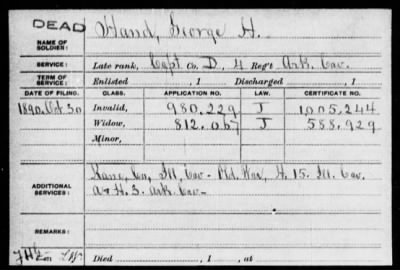 DEAD
NAME OF SOLDIER: Hand, George H.
SERVICE: Late rank, Capt. Co. D, 4 Reg't Ark. Cav.
TERM OF SERVICE: Enlisted , 1 Discharged , 1
DATE OF FILING. CLASS. APPLICATION NO. LAW. CERTIFICATE NO.
1890. Oct. 30 Invalid, 980.229 J 1.005.244
Widow, 812.067 J 588.929
Minor,
ADDITIONAL SERVICES: Kane, Co, Ill. Cav. H. 15. Ill. Cav.
& H. 3. Ark. Cav.
REMARKS:
Died , 1 , at